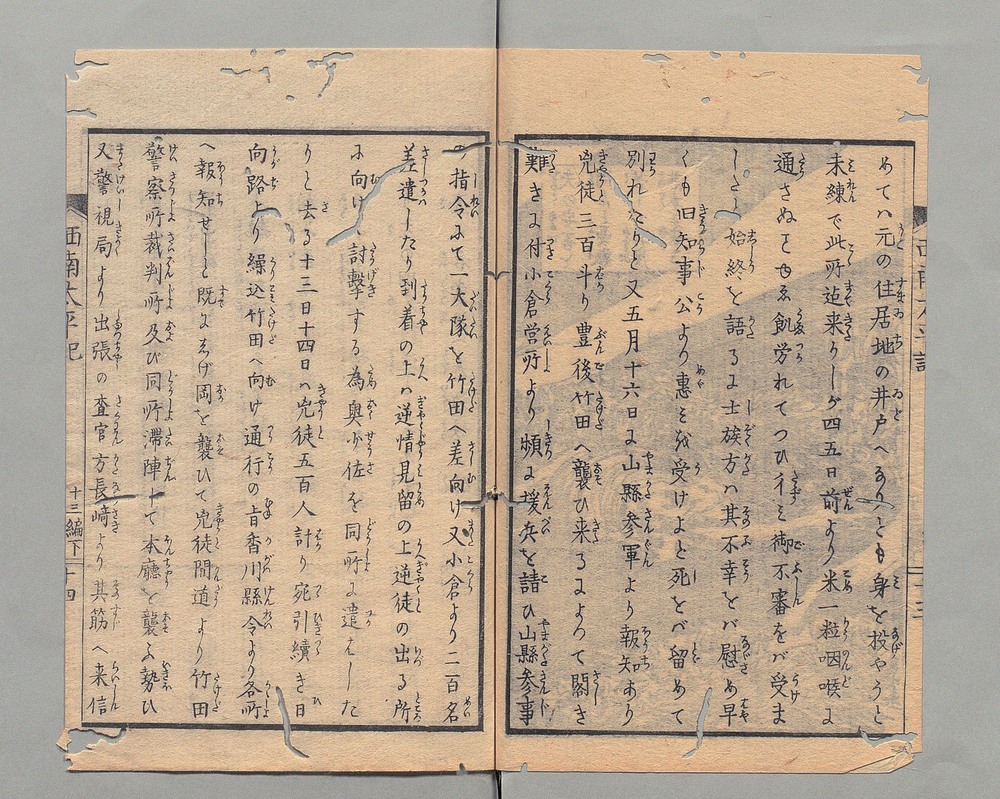 めてハ元の住居地の井戸へなりとも身を投やうと
未練で此所迄来りしが四五日前より米一粒咽喉に
通さぬゆゑ飢労れてつひイミ御不審をバ受ま
したと始終を語るに士族方ハ其不幸をバ慰め早
くも旧知事公より惠ミを受けよと死をバ留めて
別れたりと又五月十六日に山縣参軍より報知あり
兇徒三百斗り豊後竹田へ襲ひ来るよつて閣き
難きに付小倉営所より頻に援兵を請ひ山縣参事
の指令にて一大隊を竹田へ差向け又小倉より二百名
差遣したり到着の上ハ逆情見留の上逆徒の出る所
に向け討撃する為奥少佐を同所に遣はした
りと去る十三日十四日ハ兇徒五百人計り宛引續き日
向路より繰込竹田へ向け通行の旨香川縣令より各所
へ報知せしと既にゑげ岡を襲ひて兇徒間道より竹田
警察所裁判所及び同所滞陣して本廳を襲ふ勢ひ
又警視局より出張の査官方長﨑より其筋へ来信
西南太平記
十三編下
十四